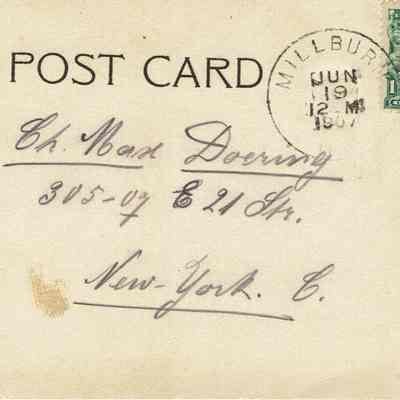 POST CARD
MILLBUR
JUN
19
12 M
1907
Ch. Max Doering
305-07 E 21 Str.
New-York. C.